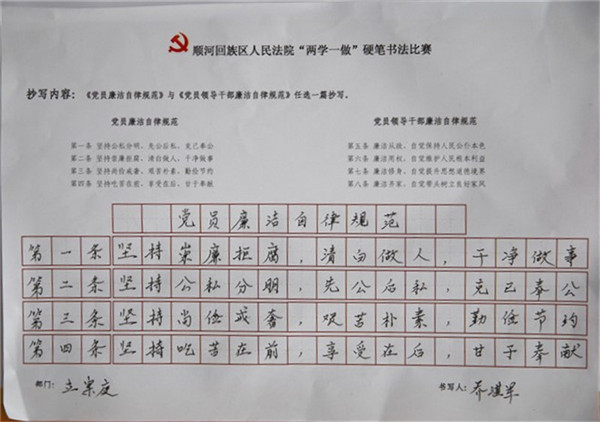 顺河回族区人民法院“两学一做”硬笔书法比赛
抄写内容：《党员廉洁自律规范》与《党员领导干部廉洁自律规范》任选一篇抄写。
党员廉洁自律规范
第一条 坚持公私分明，先公后私，克己奉公
第二条 坚持崇廉拒腐，清白做人，干净做事
第三条 坚持尚俭戒奢，艰苦朴素，勤俭节约
第四条 坚持吃苦在前，享受在后，甘于奉献
党员领导干部廉洁自律规范
第五条 廉洁从政，自觉保持人民公仆本色
第六条 廉洁用权，自觉维护人民根本利益
第七条 廉洁修身，自觉提升思想道德境界
第八条 廉洁齐家，自觉带头树立良好家风
党员廉洁自律规范
第一条坚持崇廉拒腐，清白做人，干净做事
第二条坚持公私分明，先公后私，克己奉公
第三条坚持尚俭戒奢，艰苦朴素，勤俭节约
第四条坚持吃苦在前，享受在后，甘于奉献
部门：立案庭 书写人：乔